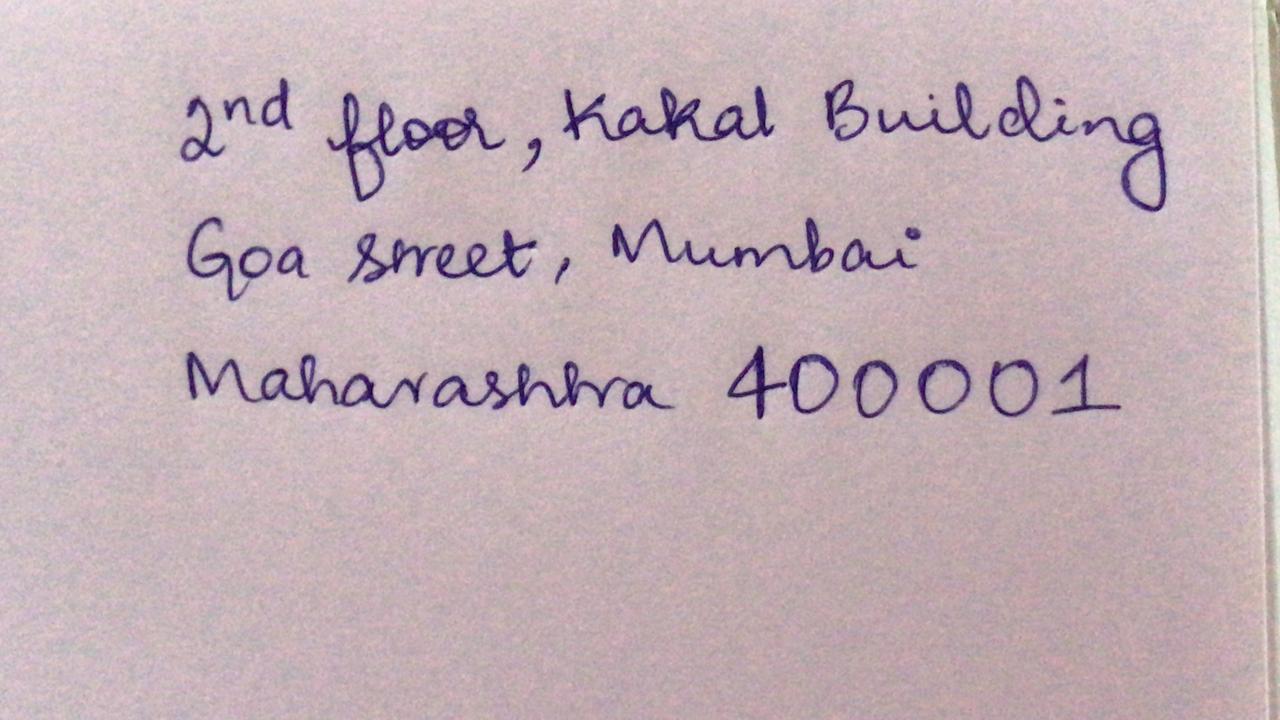 2nd floor, Kakal Building
Goa street, Mumbai
Maharashtra 400001